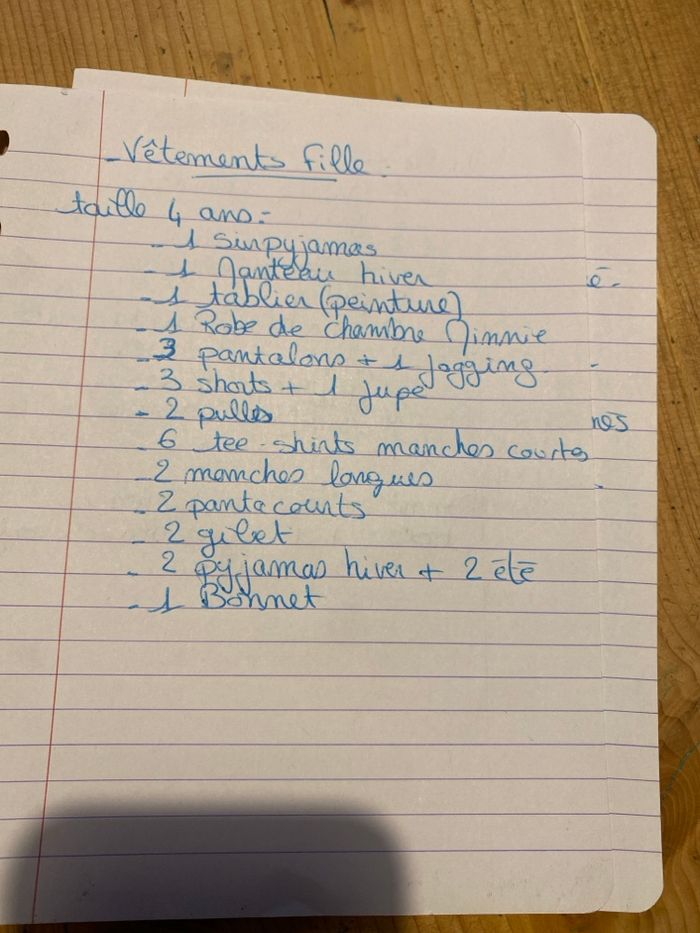 - Vêtements fille.
taille 4 ans:
- 1 surpyjamas
- 1 Manteau hiver
- 1 tablier (peinture)
- 1 Robe de chambre Minnie
- 3 pantalons + 1 jogging
- 3 shorts + 1 jupe
- 2 pulls
- 6 tee-shirts manches courtes
- 2 manches longues
- 2 pantacourts
- 2 gilet
- 2 pyjamas hiver + 2 été
- 1 Bonnet